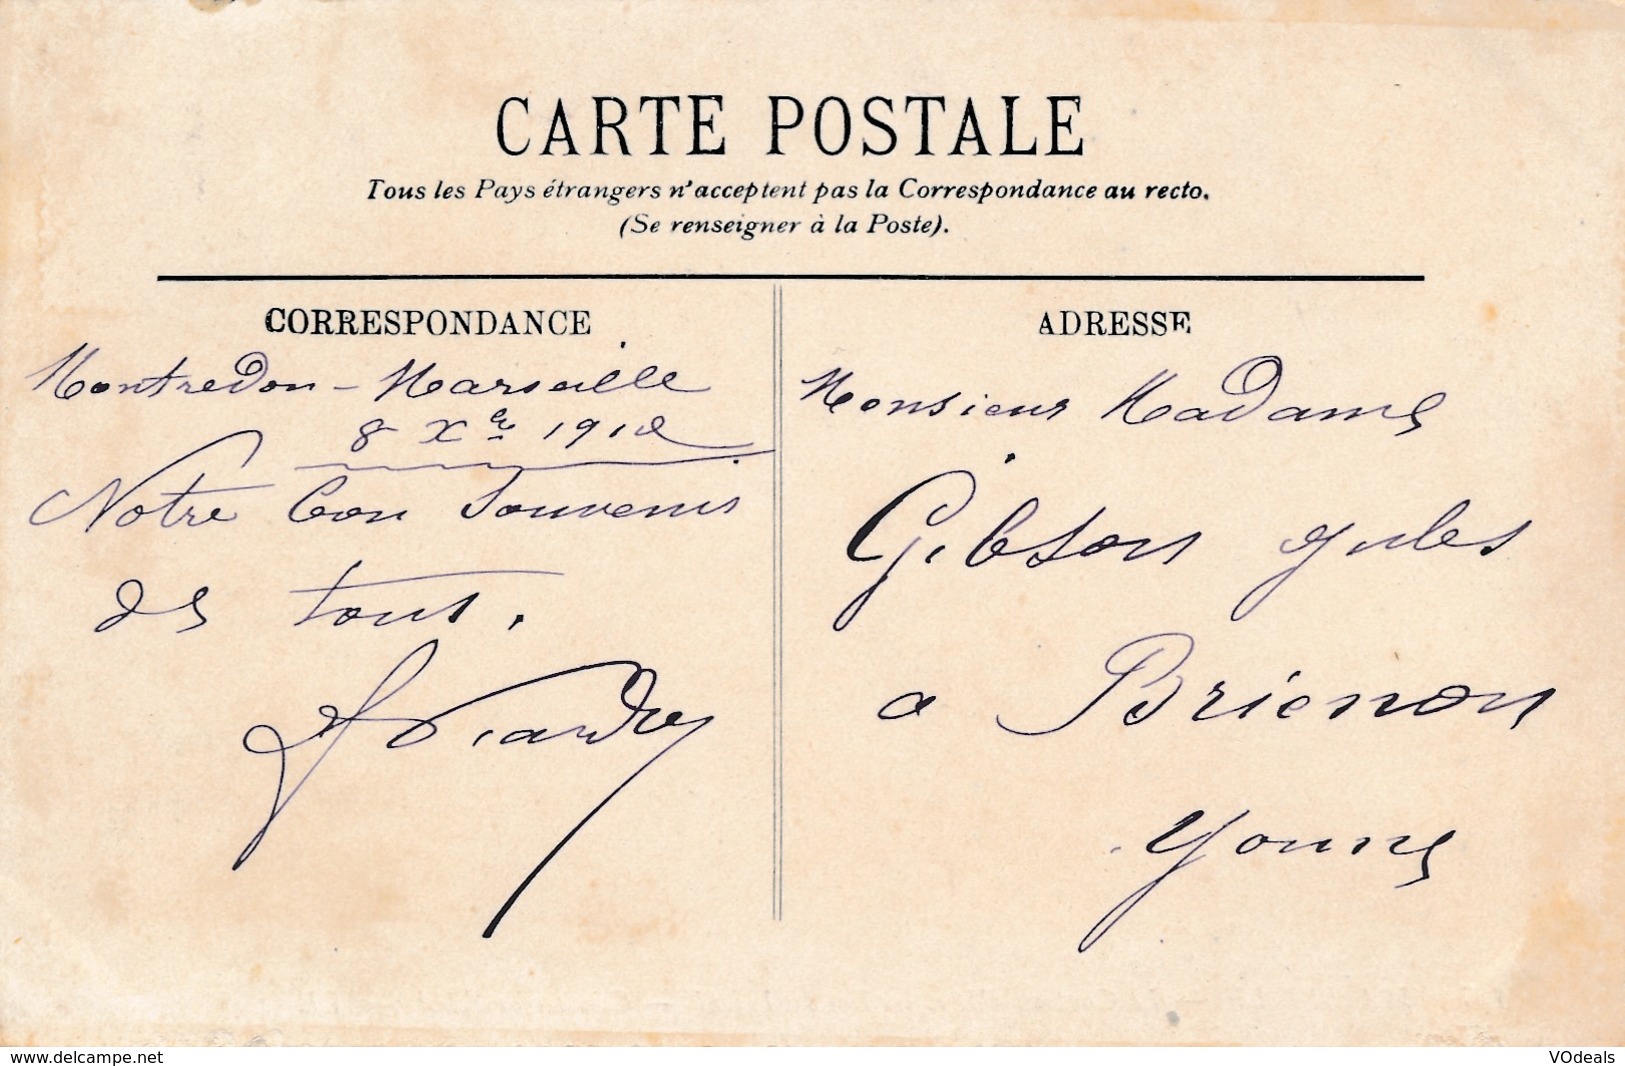 CARTE POSTALE
Tous les Pays étrangers n'acceptent pas la Correspondance au recto.
(Se renseigner à la Poste).
CORRESPONDANCE
Montredon - Marseille
8 Xre 1912
Notre bon Souvenir
de tous.
ADRESSE
Monsieur Madame
Gibson Jules
a Brienon
Yonne
www.delcampe.net
VOdeals